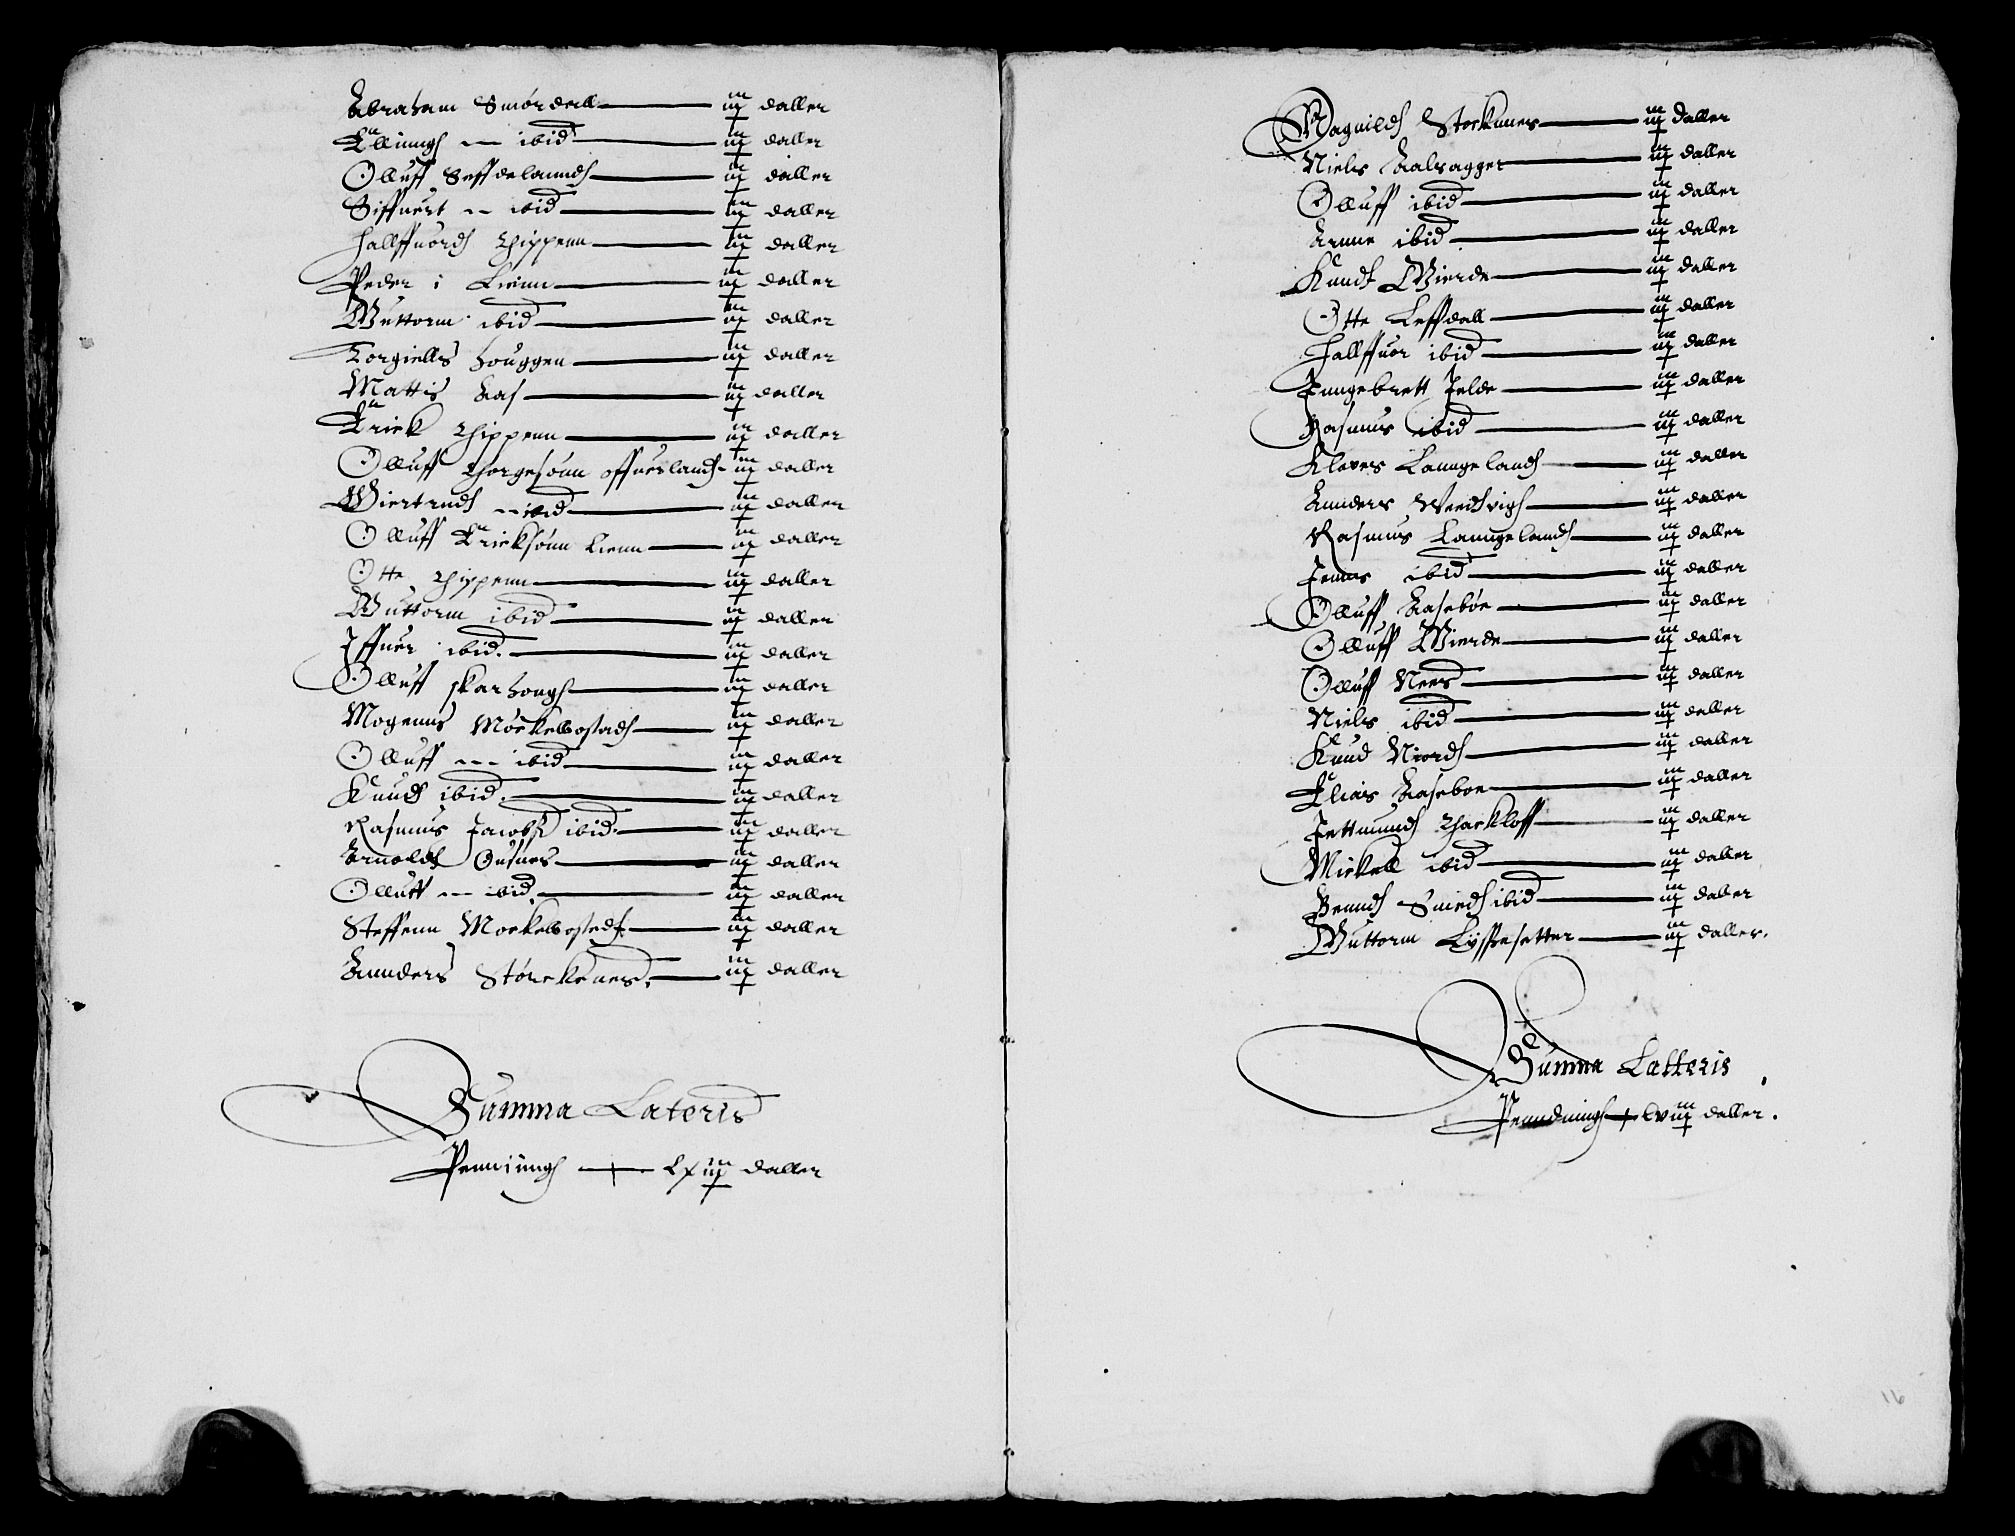 Abraham Smørdall iij daller
Elliungh --- ibid iij daller
Olluff Seffdelanndh iij daller
Siffuert -- ibid iij daller
Hallffuordh Thippenn iij daller
Peder i Lienn iij daller
Guttorm ibid iij daller
Torgiells houggen iij daller
Mattis Aas iij daller
Erick Thippenn iij daller
Olluff Thorgesønn offuerlandh iij daller
Giertrudh -- ibid iij daller
Olluff Ericksønn Lienn iij daller
Otte Thippenn iij daller
Guttorm ibid iij daller
Iffuer ibid. iij daller
Olluff skarhough iij daller
Mogenns Møckelbostadh iij daller
Olluff --- ibid iij daller
Knudh ibid. iij daller
Rasmus Jacobs ibid. iij daller
Arnoldh Ousnes iij daller
Olluff --- ibid. iij daller
Steffenn Mockelbostedh iij daller
Annders Størckenes. iij daller
Summa Lateris
Penniungh Lxxiij daller
Ragnildh Storknnes iij daller
Niels Aaluagger iij daller
Olluff ibid iij daller
Arnne ibid iij daller
Knudt Gierde iij daller
Otte Leffdall iij daller
Hallffuor ibid iij daller
Inngebrett Jelde iij daller
Rasmus ibid iij daller
Klavers Lanngelandh iij daller
Annders Vredhvigh iij daller
Rasmus Lanngelandh iij daller
Jenns ibid iij daller
Olluff Aasebøe iij daller
Olluff Gierde iij daller
Olluff Nees iij daller
Niels ibid iij daller
Knud Niordh iij daller
Elias Aaseboe iij daller
Jettmundh Tharkloff iij daller
Mickell ibid iij daller
Benndh Smedh ibid iij daller
Guttorm Lyssesetter iij daller.
Summa Latteris
Penndningh Lxviij daller.
16